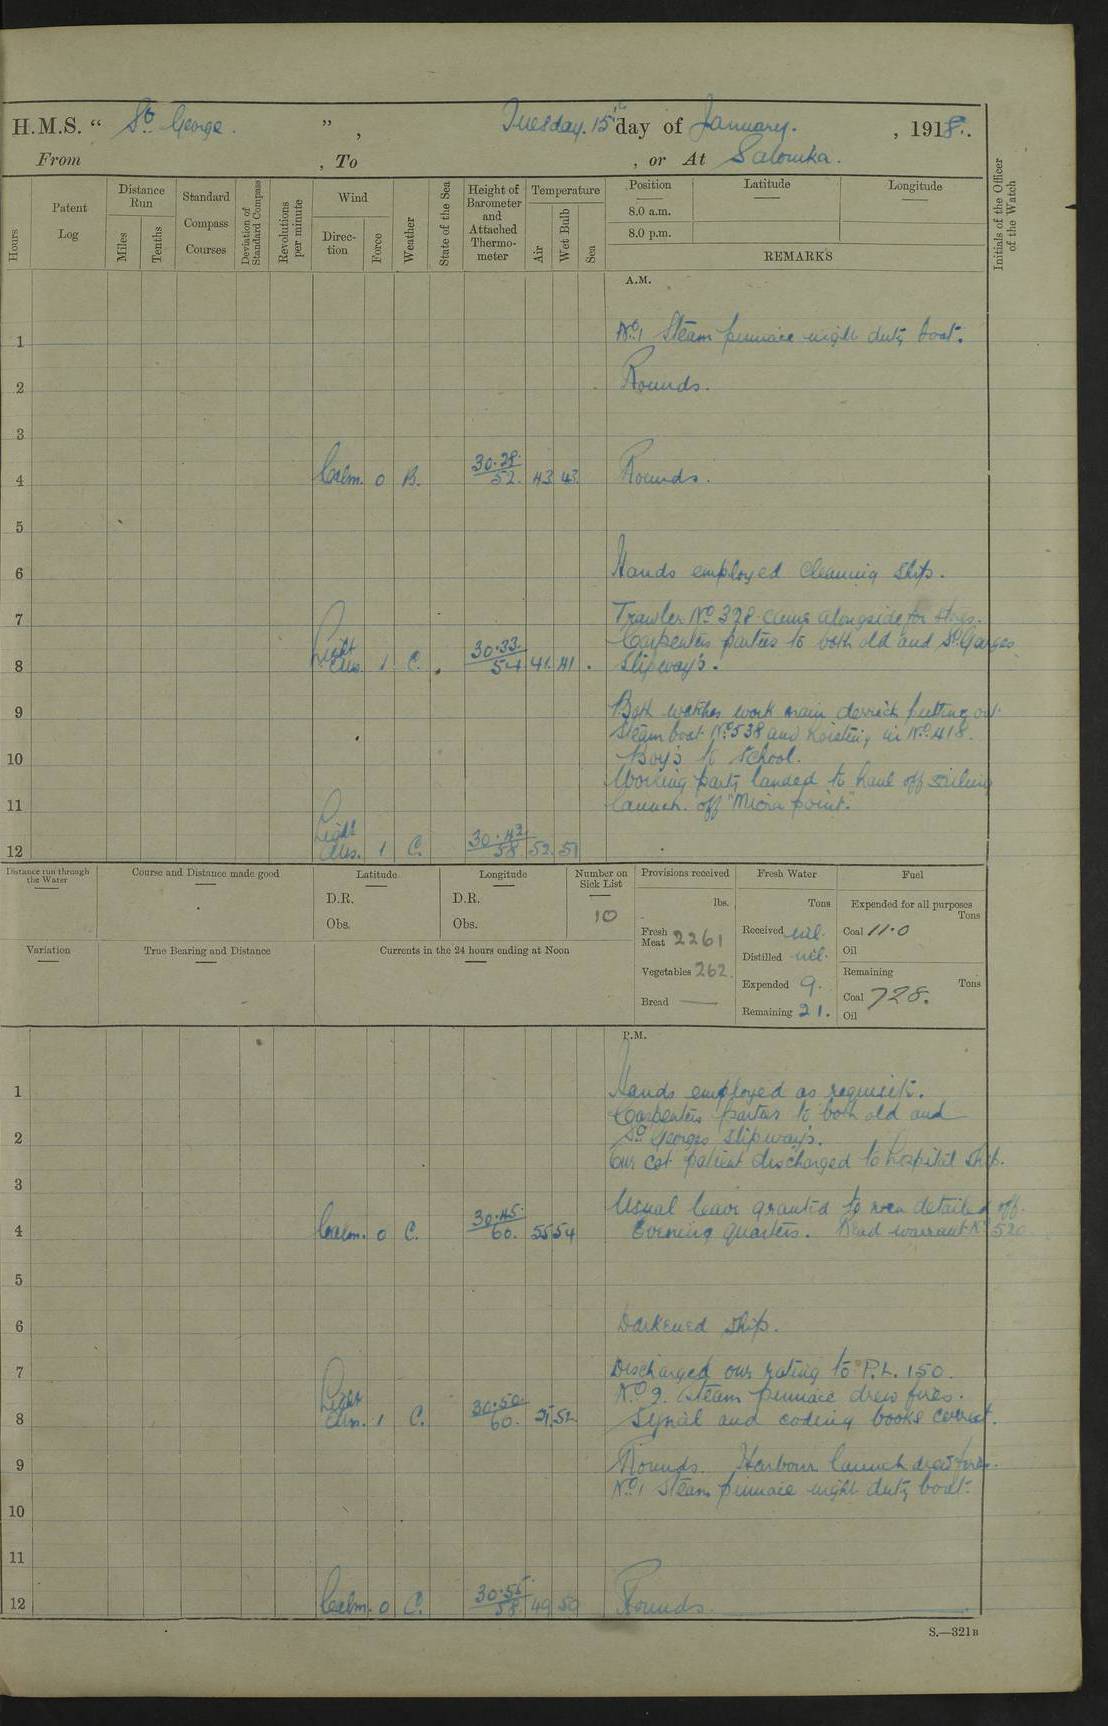 H.M.S. “ St. George. ” , Tuesday. 15th day of January. , 1918.
From , To , or At Salonika.
Hours
Patent Log
Distance Run
Miles
Tenths
Standard Compass Courses
Deviation of Standard Compass
Revolutions per minute
Wind
Direction
Force
Weather
State of the Sea
Height of Barometer and Attached Thermometer
Temperature
Air
Wet Bulb
Sea
Position
8.0 a.m.
8.0 p.m.
Latitude
Longitude
REMARKS
Initials of the Officer of the Watch
A.M.
1 No. 1 Steam pinnace night duty boat.
2 Rounds.
3
4 Calm. 0 B. 30.28 52. 43 43. Rounds.
5
6 Hands employed cleaning ship.
7 Trawler No. 328 came alongside for stores.
Carpenters parties to both old and St. Georges
8 Light airs. 1 C. 30.33. 54 41. 41. slipway's.
9 Both watches work main derrick putting out
steam boat No. 538 and hoisting in No. 418.
10 Boy's to school.
Working party landed to haul off sailing
11 launch. off "Micra point."
12 Light airs. 1 C. 30.42. 58 52. 51
Distance run through the Water
Course and Distance made good
Latitude
D.R.
Obs.
Longitude
D.R.
Obs.
Number on Sick List
10
Provisions received
lbs.
Fresh Meat 2261
Vegetables 262.
Bread —
Fresh Water
Tons
Received nil.
Distilled nil.
Expended 9.
Remaining 21.
Fuel
Expended for all purposes
Tons
Coal 11.0
Oil
Remaining
Tons
Coal 728.
Oil
Variation
True Bearing and Distance
Currents in the 24 hours ending at Noon
P.M.
1 Hands employed as requisite.
Carpenters parties to both old and
2 St. Georges slipway's.
One cot patient discharged to hospital ship.
3
Usual leave granted to men detailed off.
4 Calm. 0 C. 30.45. 60. 55 54 Evening quarters. Read warrant No. 520
5
6 Darkened ship.
7 Discharged one rating to P.L. 150.
No. 2. Steam pinnace drew fires.
8 Light airs. 1 C. 30.50. 60. 51. 52. Signal and coding books correct.
9 Rounds. Harbour launch drew fires.
No. 1 Steam pinnace night duty boat.
10
11
12 Calm. 0 C. 30.55. 58. 49 50 Rounds.
S.—321B